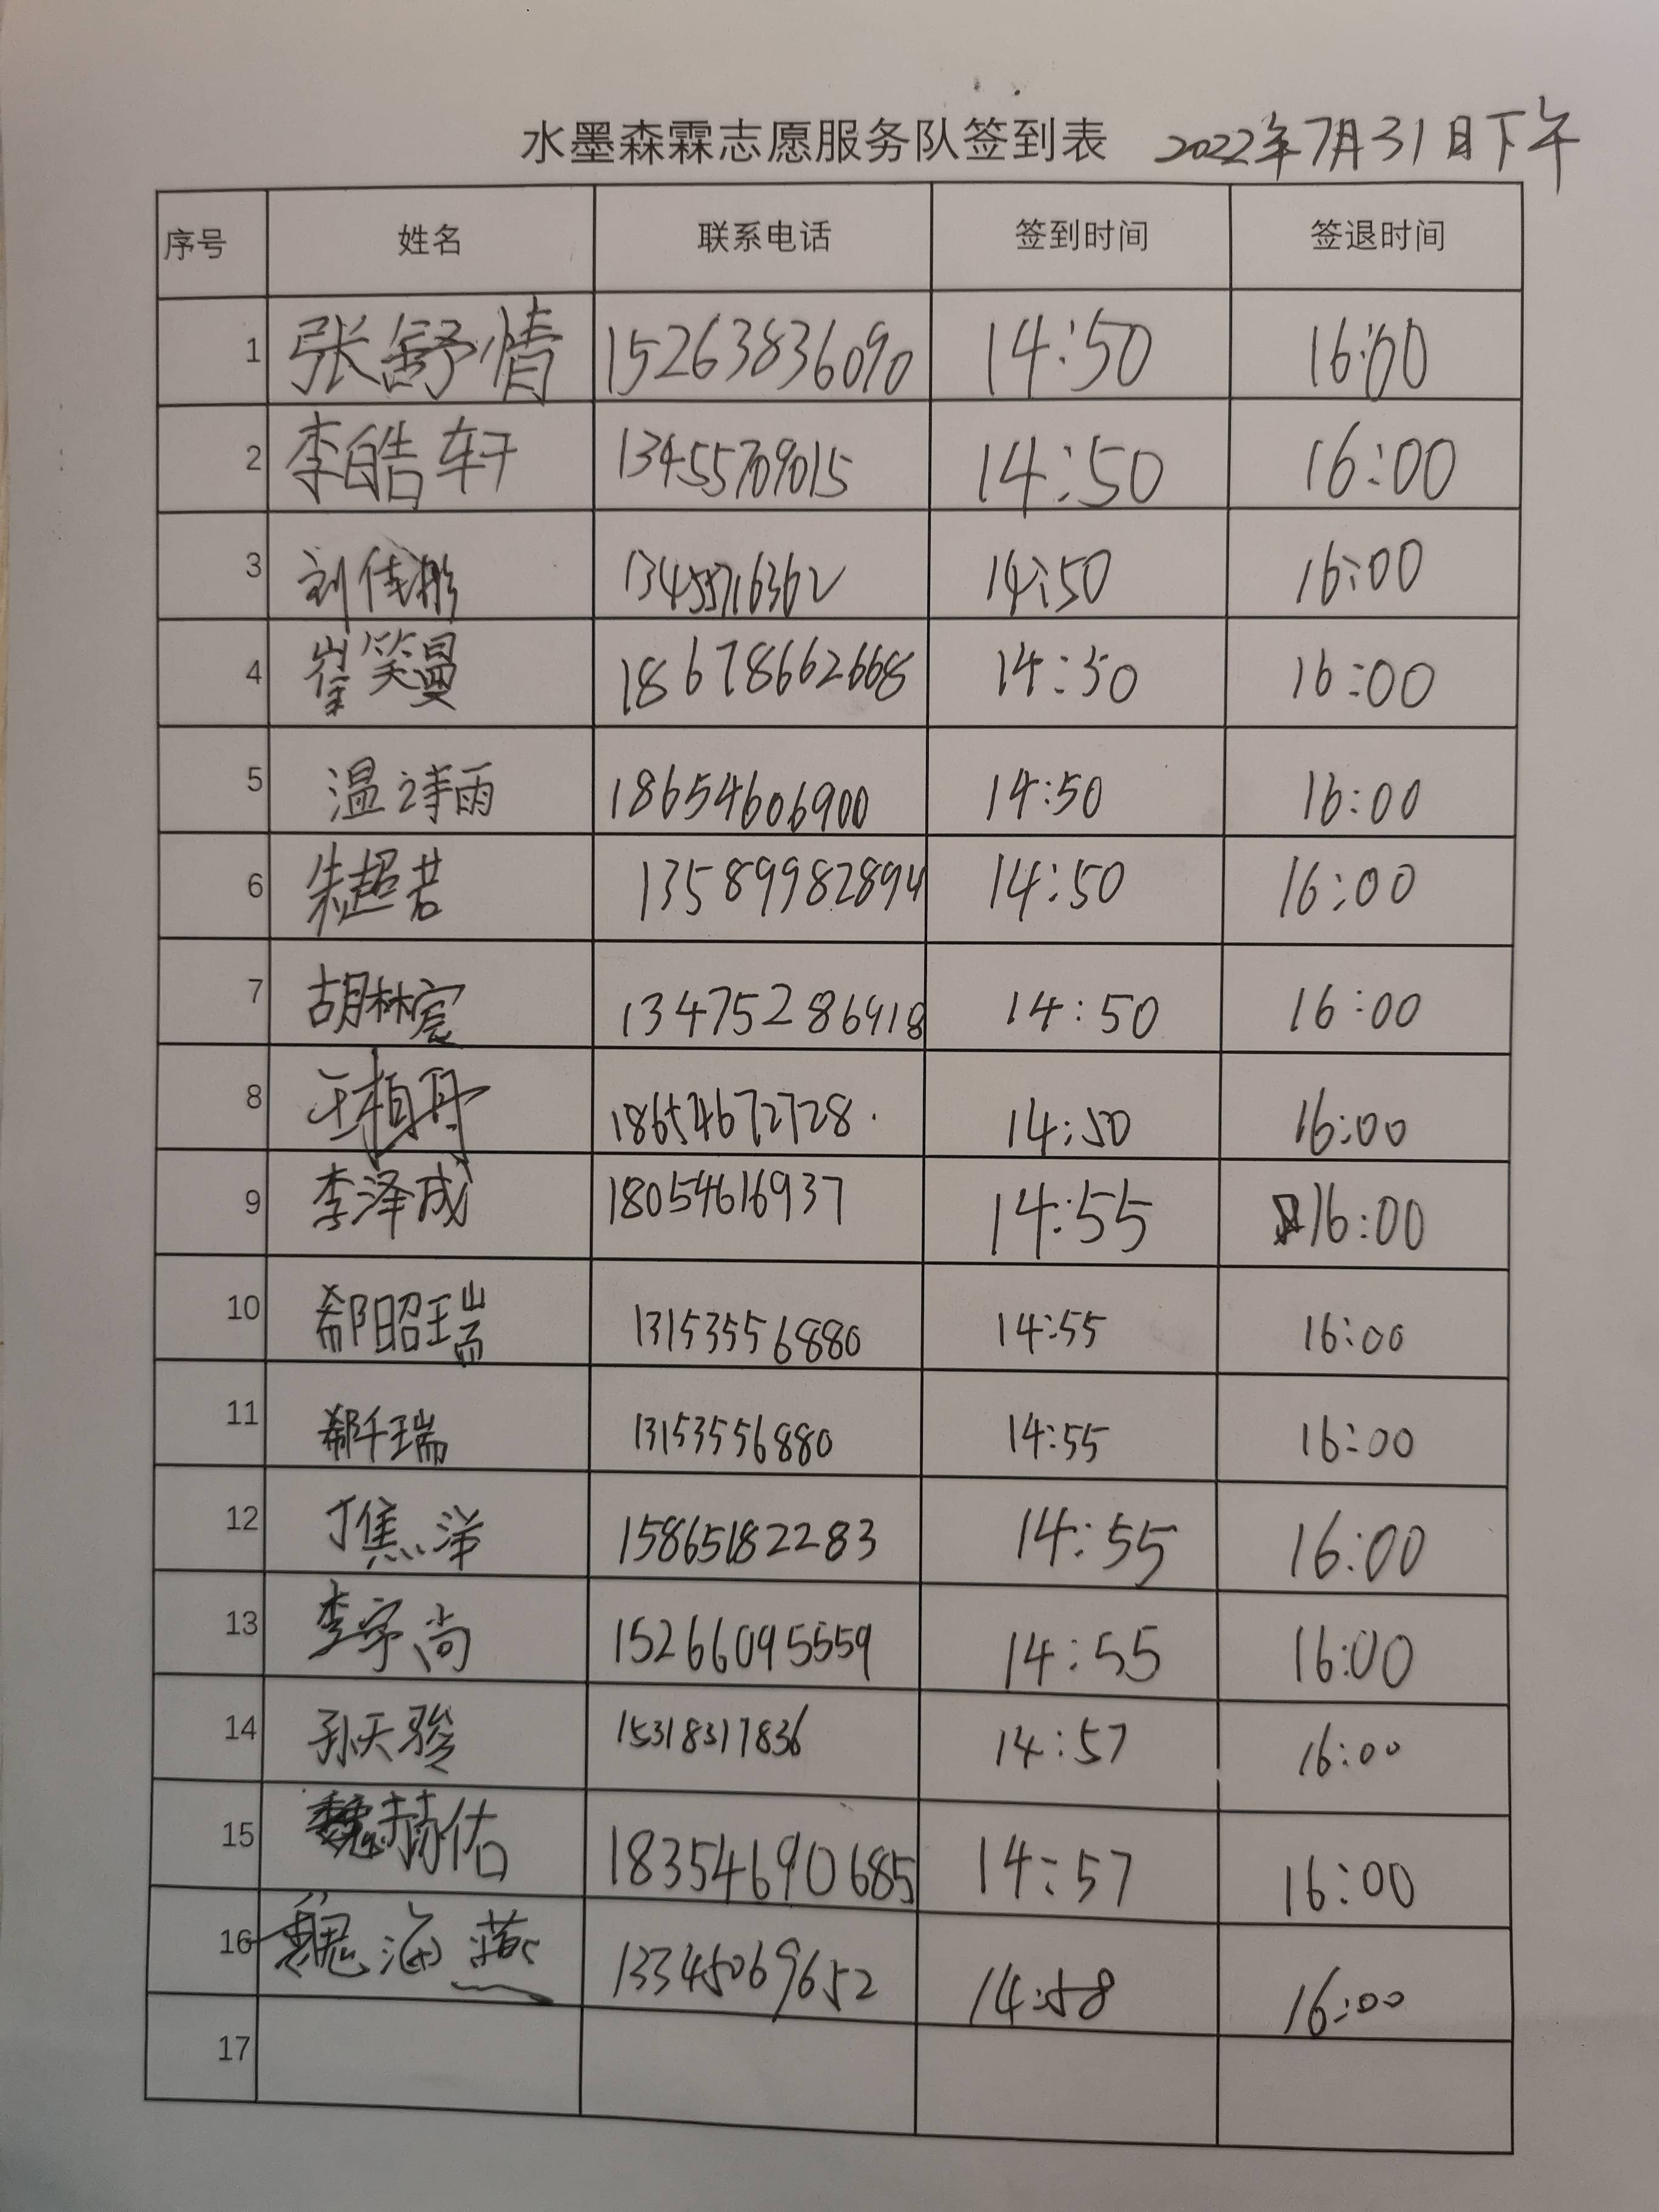 水墨森霖志愿服务队签到表 2022年7月31日下午
序号 姓名 联系电话 签到时间 签退时间
1 张舒情 15263836090 14:50 16:00
2 李皓轩 13455709015 14:50 16:00
3 刘佳彤 13455716362 14:50 16:00
4 崔笑曼 18678662668 14:50 16:00
5 温诗雨 18654606900 14:50 16:00
6 朱超若 13589982894 14:50 16:00
7 胡林宸 13475286918 14:50 16:00
8 王柏丹 18654672728 14:50 16:00
9 李泽成 18054616937 14:55 16:00
10 郗昭瑞 13153556880 14:55 16:00
11 郗千瑞 13153556880 14:55 16:00
12 丁焦洋 15865182283 14:55 16:00
13 李宇尚 15266095559 14:55 16:00
14 孙天骏 15318317836 14:57 16:00
15 魏 佑 18354690685 14:57 16:00
16 魏海燕 13345069652 14:58 16:00
17